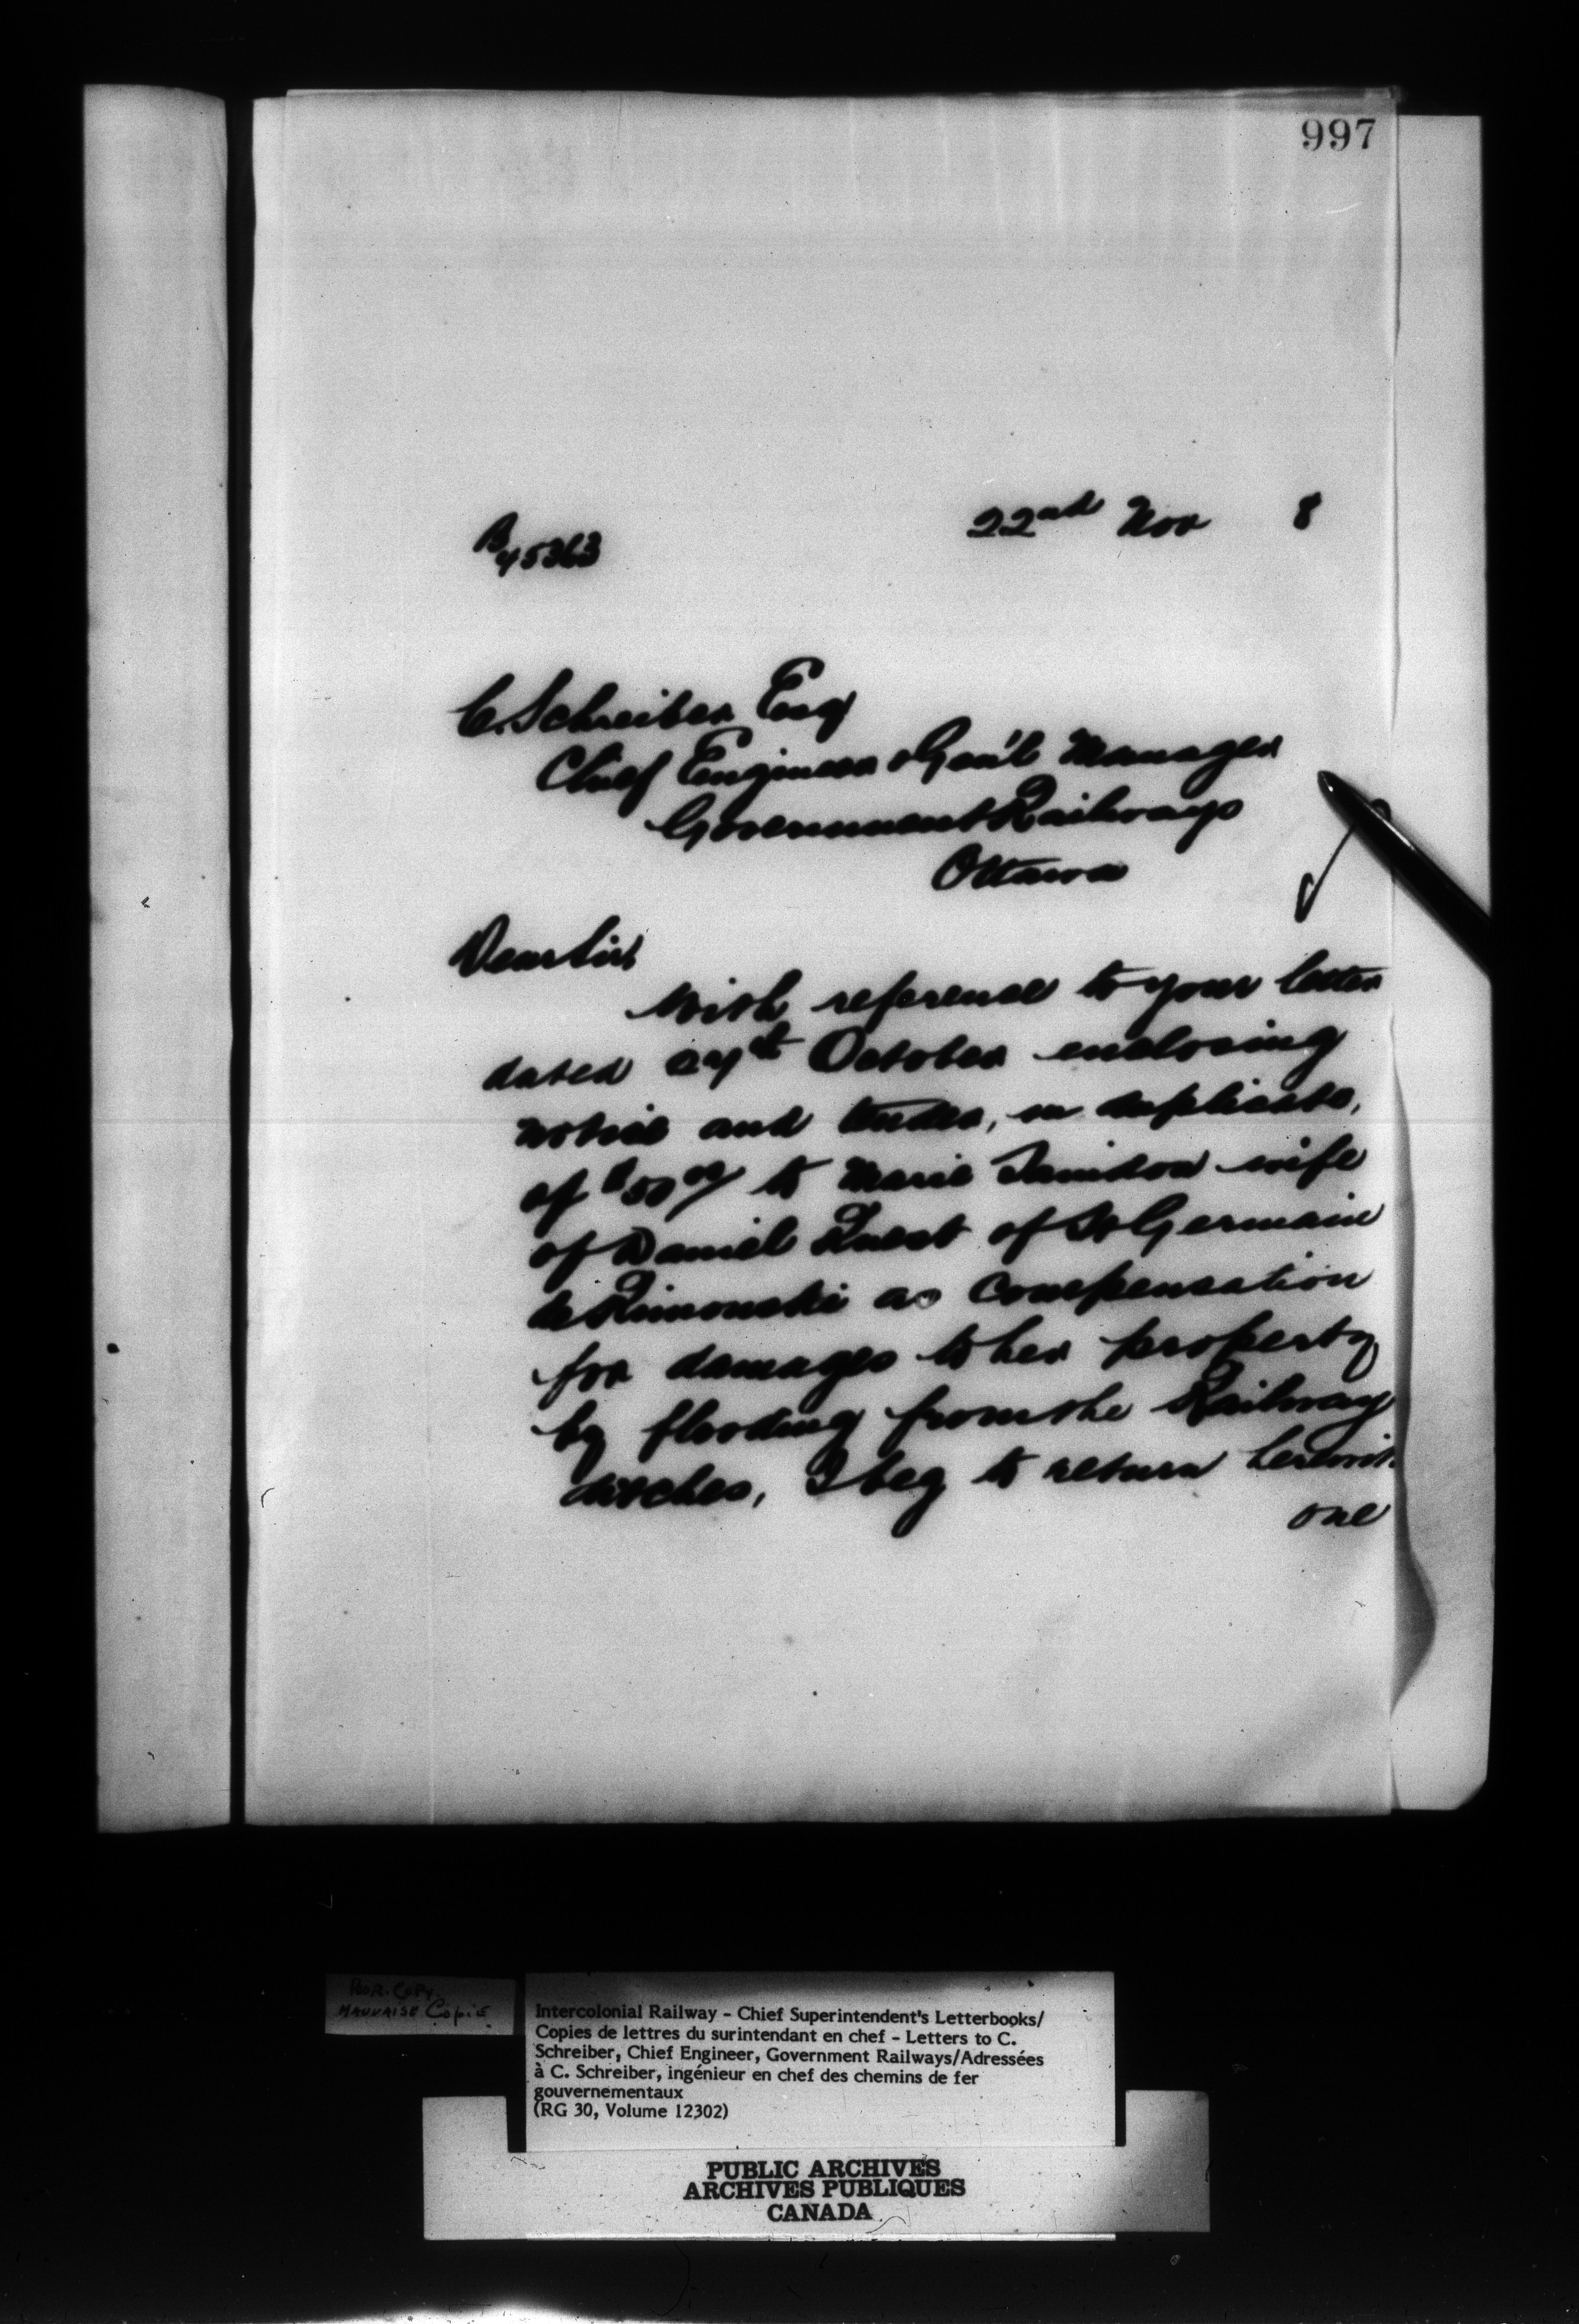 997
22nd Nov 8
B
45363
C. Schreiber Esq
Chief Engineer & Gen'l Manager
Government Railways
Ottawa
Dear Sir
With reference to your letter
dated October enclosing
notice and tender, in duplicate,
of $50 00/ to Marie wife
of Daniel of St Germain
de Rimouski as compensation
for damages to her property
by flooding from the Railway
ditches, I beg to return herewit
one
POOR COPY.
MAUVAISE COPIE.
Intercolonial Railway - Chief Superintendent's Letterbooks/
Copies de lettres du surintendant en chef - Letters to C.
Schreiber, Chief Engineer, Government Railways/Adressées
à C. Schreiber, ingénieur en chef des chemins de fer
gouvernementaux
(RG 30, Volume 12302)
PUBLIC ARCHIVES
ARCHIVES PUBLIQUES
CANADA